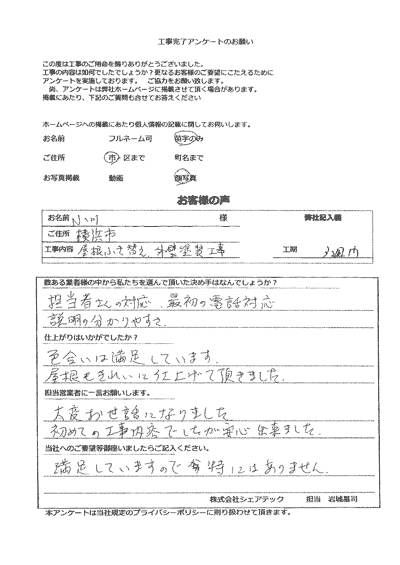 工事完了アンケートのお願い
この度は工事のご用命を賜りありがとうございました。
工事の内容は如何でしたでしょうか？更なるお客様のご要望にこたえるために
アンケートを実施しております。 ご協力をお願い致します。
尚、アンケートは弊社ホームページに掲載させて頂く場合があります。
掲載にあたり、下記のご質問も合せてお答えください
ホームページへの掲載にあたり個人情報の記載に関してお伺いします。
お名前 フルネーム可 苗字のみ
ご住所 市・区まで 町名まで
お写真掲載 動画 顔写真
お客様の声
お名前 様 弊社記入欄
ご住所 横浜市
工事内容 屋根ふき替え、外壁塗装工事 工期 3週間
数ある業者様の中から私たちを選んで頂いた決め手はなんでしょうか？
担当者さんの対応、最初の電話対応
説明の分かりやすさ
仕上がりはいかがでしたか？
色合いは満足しています。
屋根もきれいに仕上げて頂きました。
担当営業者に一言お願いします。
大変お世話になりました
初めての工事内容でしたが安心出来ました。
当社へのご要望等御座いましたらご記入ください。
満足していますので特にはありません。
株式会社シェアテック 担当 岩城基司
本アンケートは当社規定のプライバシーポリシーに則り扱わせて頂きます。